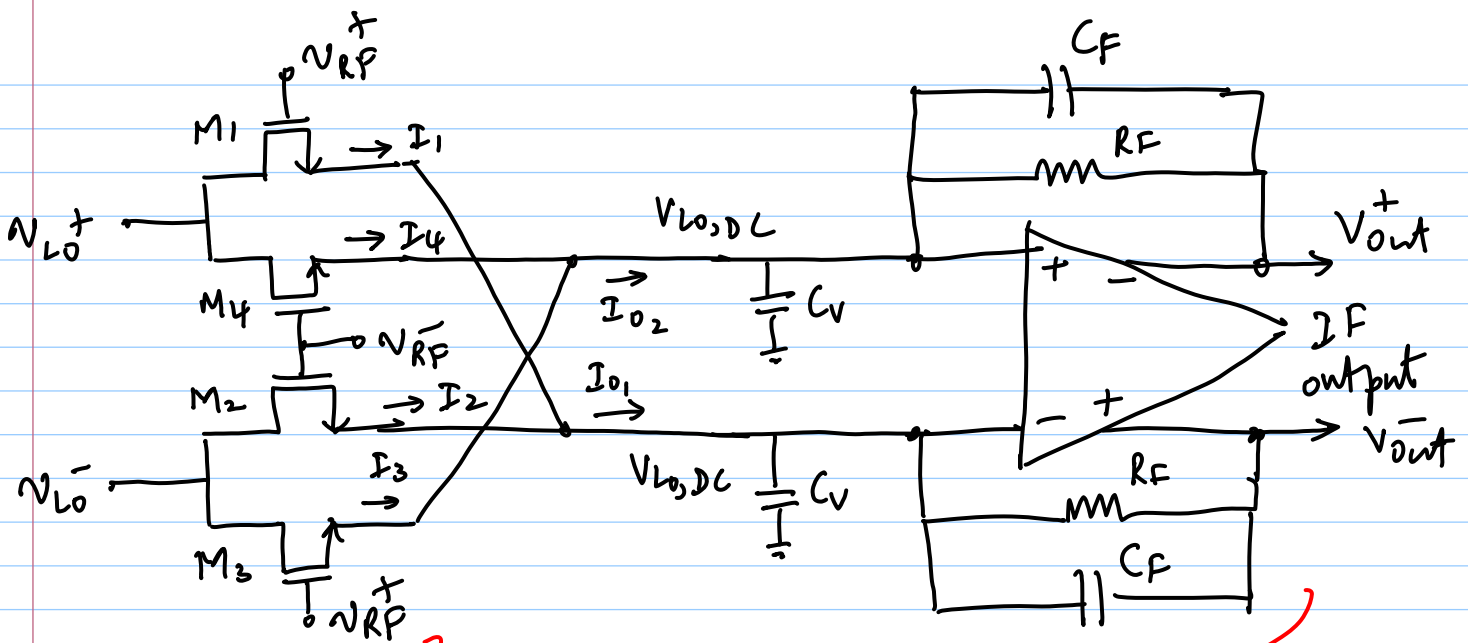 V_RF^+
C_F
M1
I_1
RF
V_LO^+
I_4
V_LO,DC
V_Out^+
+
−
M4
I_O2
C_V
IF
output
V_RF^-
M2
I_2
I_O1
−
+
V_Out^-
V_LO^-
I_3
V_LO,DC
C_V
RF
M3
C_F
V_RF^+